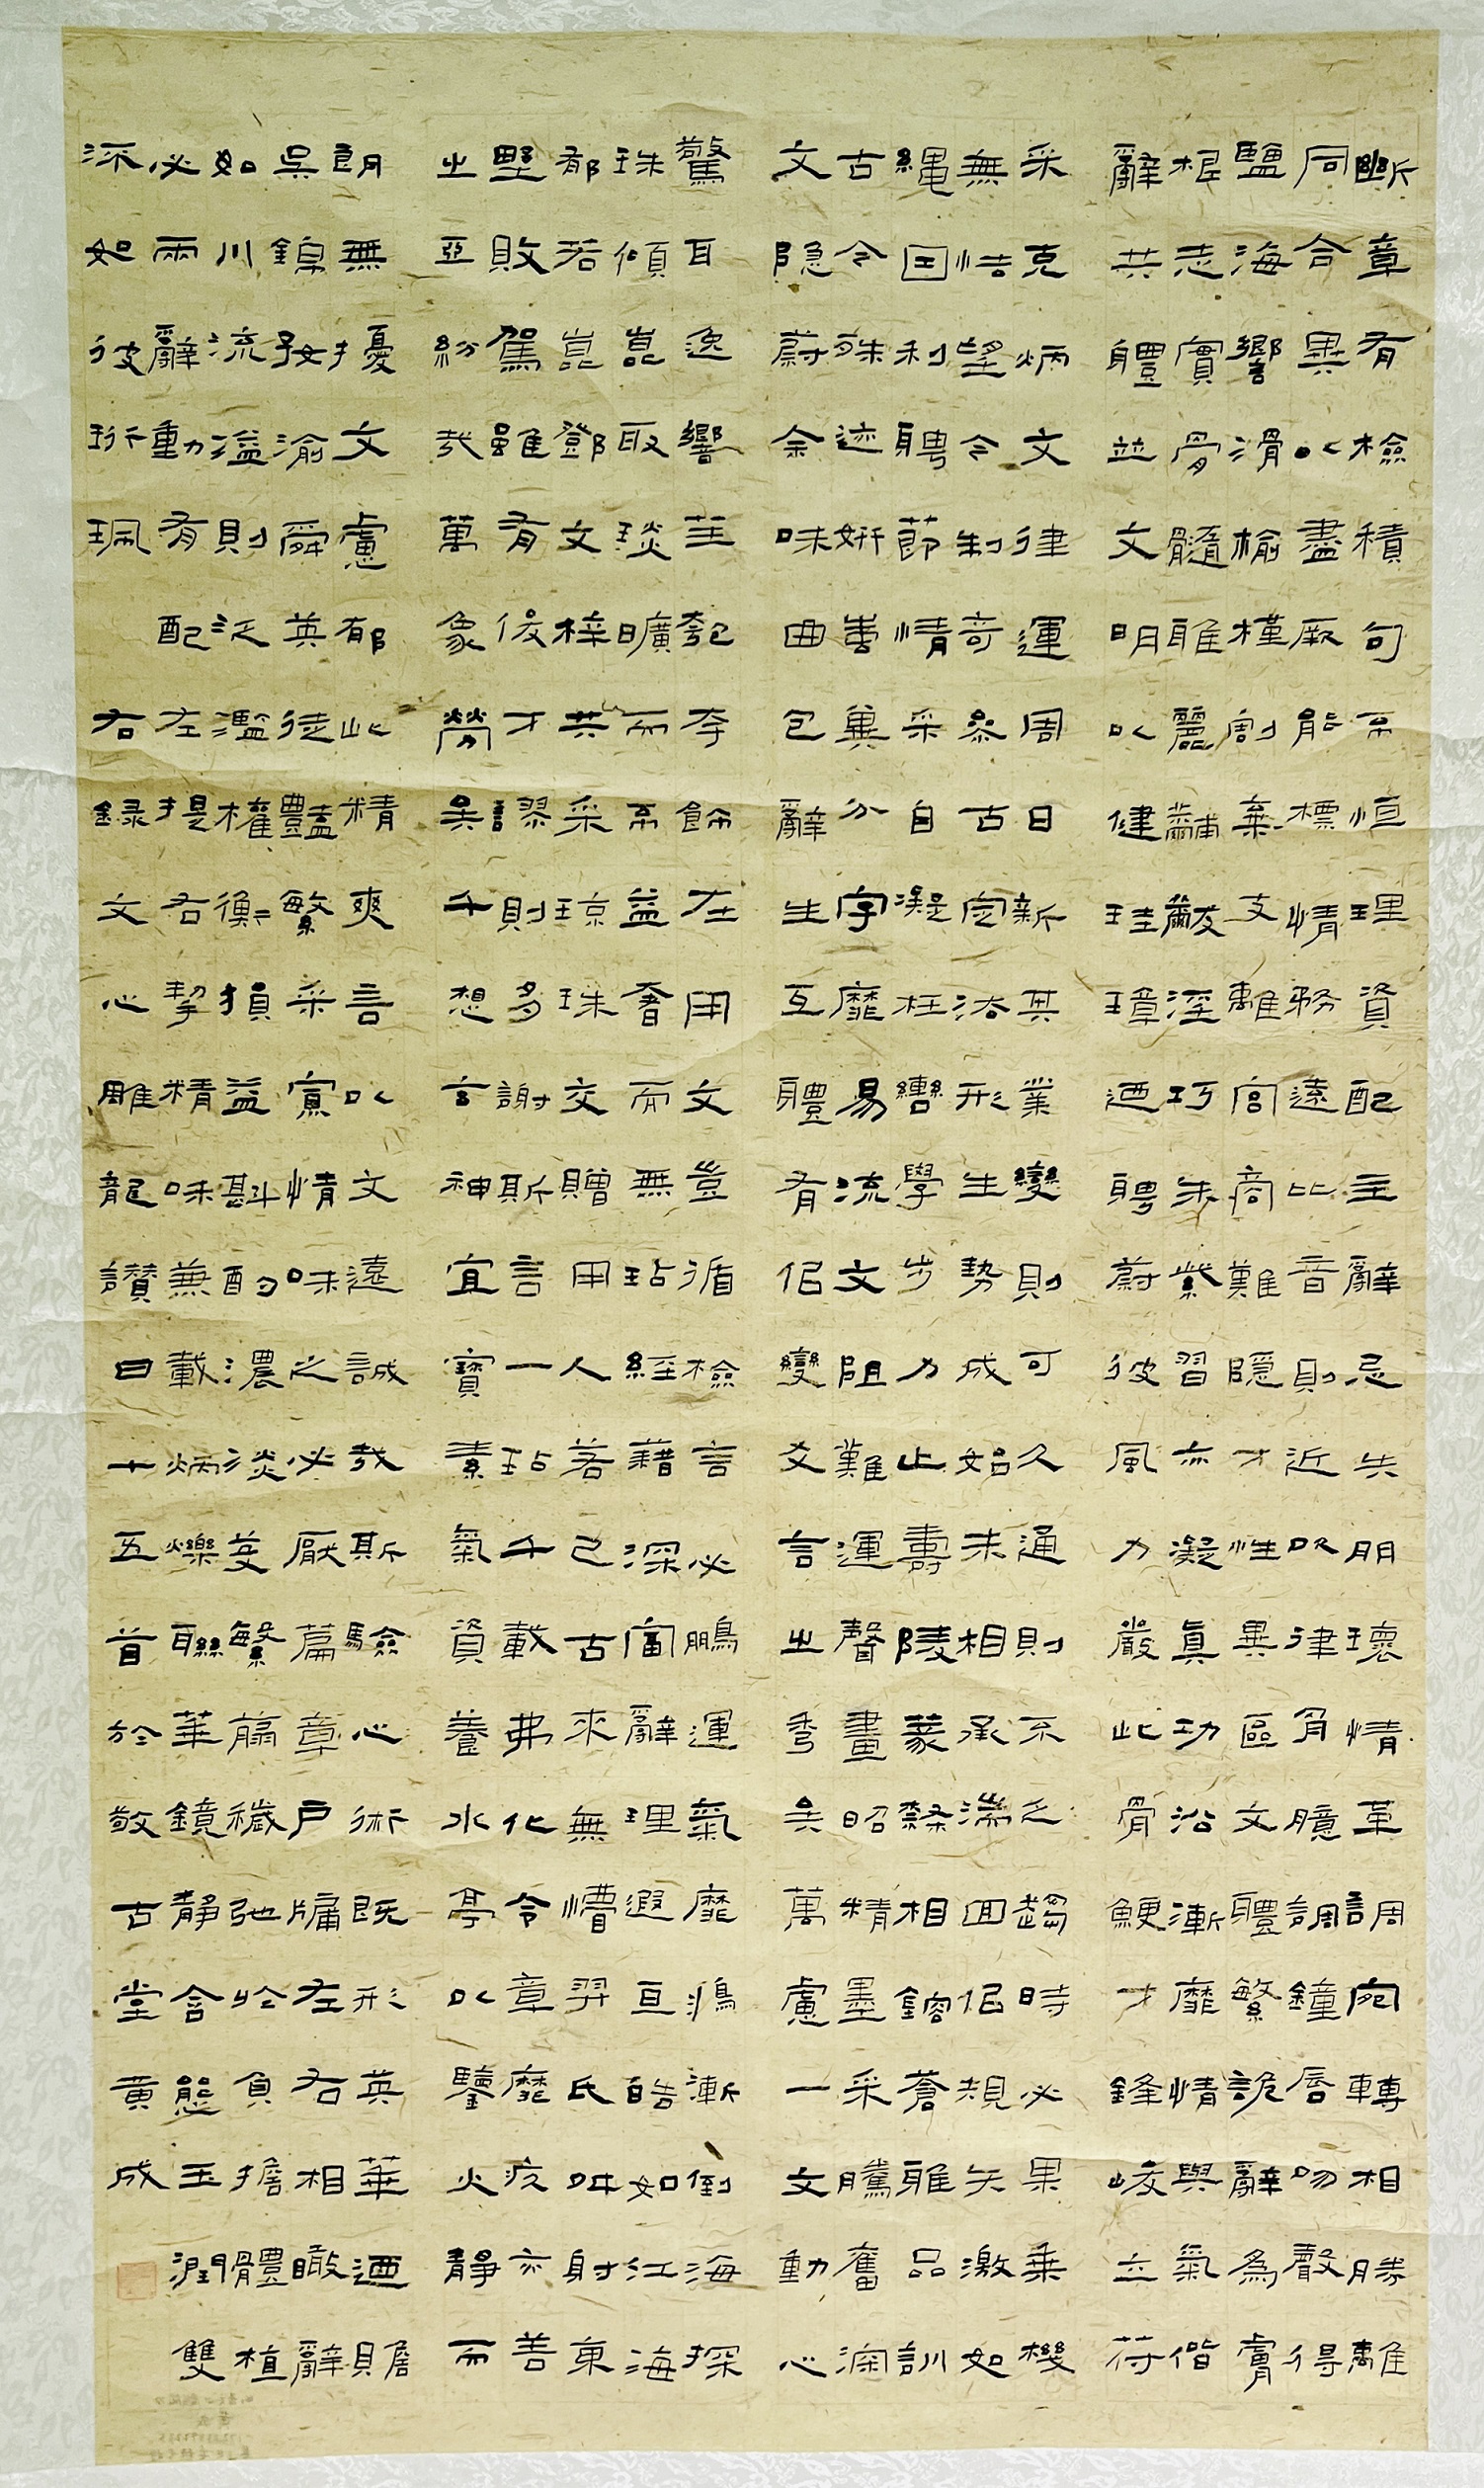 斷章有檢積句不恒理資配主辭忌失朋環情革調宛轉相勝離
同合異以盡厥能標情務遠比音則近吹律角臆調鐘唇吻聲得
鹽海響滑榆槿割棄支離宮商難隱才性異區文體繁詭辭為膚
根志實骨髓雅麗黼黻淫巧朱紫習亦凝真功沿漸靡情與氣偕
辭共體並文明以健珪璋迺聘蔚彼風力嚴此骨鯁才鋒峻立符
采克炳文律運周日新其業變則可久通則不乏趨時必果乘機
無怯望今制奇參古定法形生勢成始末相承湍回規矢激如
繩因利聘節情采自凝枉轡學步力止壽陵篆隸相鎔蒼雅品訓
古今殊迹妍蚩異分字靡易流文阻難運聲畫昭精墨采騰奮深
文隱蔚余味曲包辭生互體有似變爻言之秀矣萬慮一文動心
驚耳逸響笙匏夸飾在用文豈循檢言必鵬運氣靡鴻漸倒海探
珠傾崑取琰曠而不益奢而無玷經籍深富辭理遐亘皓如江海
郁若崑鄧文梓共采瓊珠交贈用人若己古來無懵羿氏舛射東
野敗駕雖有俊才謬則多謝斯言一玷千載弗化令章靡疚亦善
之亞紛哉萬象勞矣千想言神宜寶素氣資養水亭以鑒火靜而
朗無擾文慮郁此精爽言以文遠誠哉斯驗心術既形英華迺贍
吳錦好渝舜英徒豔繁采寡情味之必厭篇章戶牖左右相瞰辭
如川流溢則泛濫權衡損益斟酌濃淡芟繁剪穢弛於負擔體植
必兩辭動有配左提右挈精味兼載炳爍聯華鏡靜含態玉潤雙
流如彼珩珮右錄文心雕龍讚曰十五首於敬古堂黃成